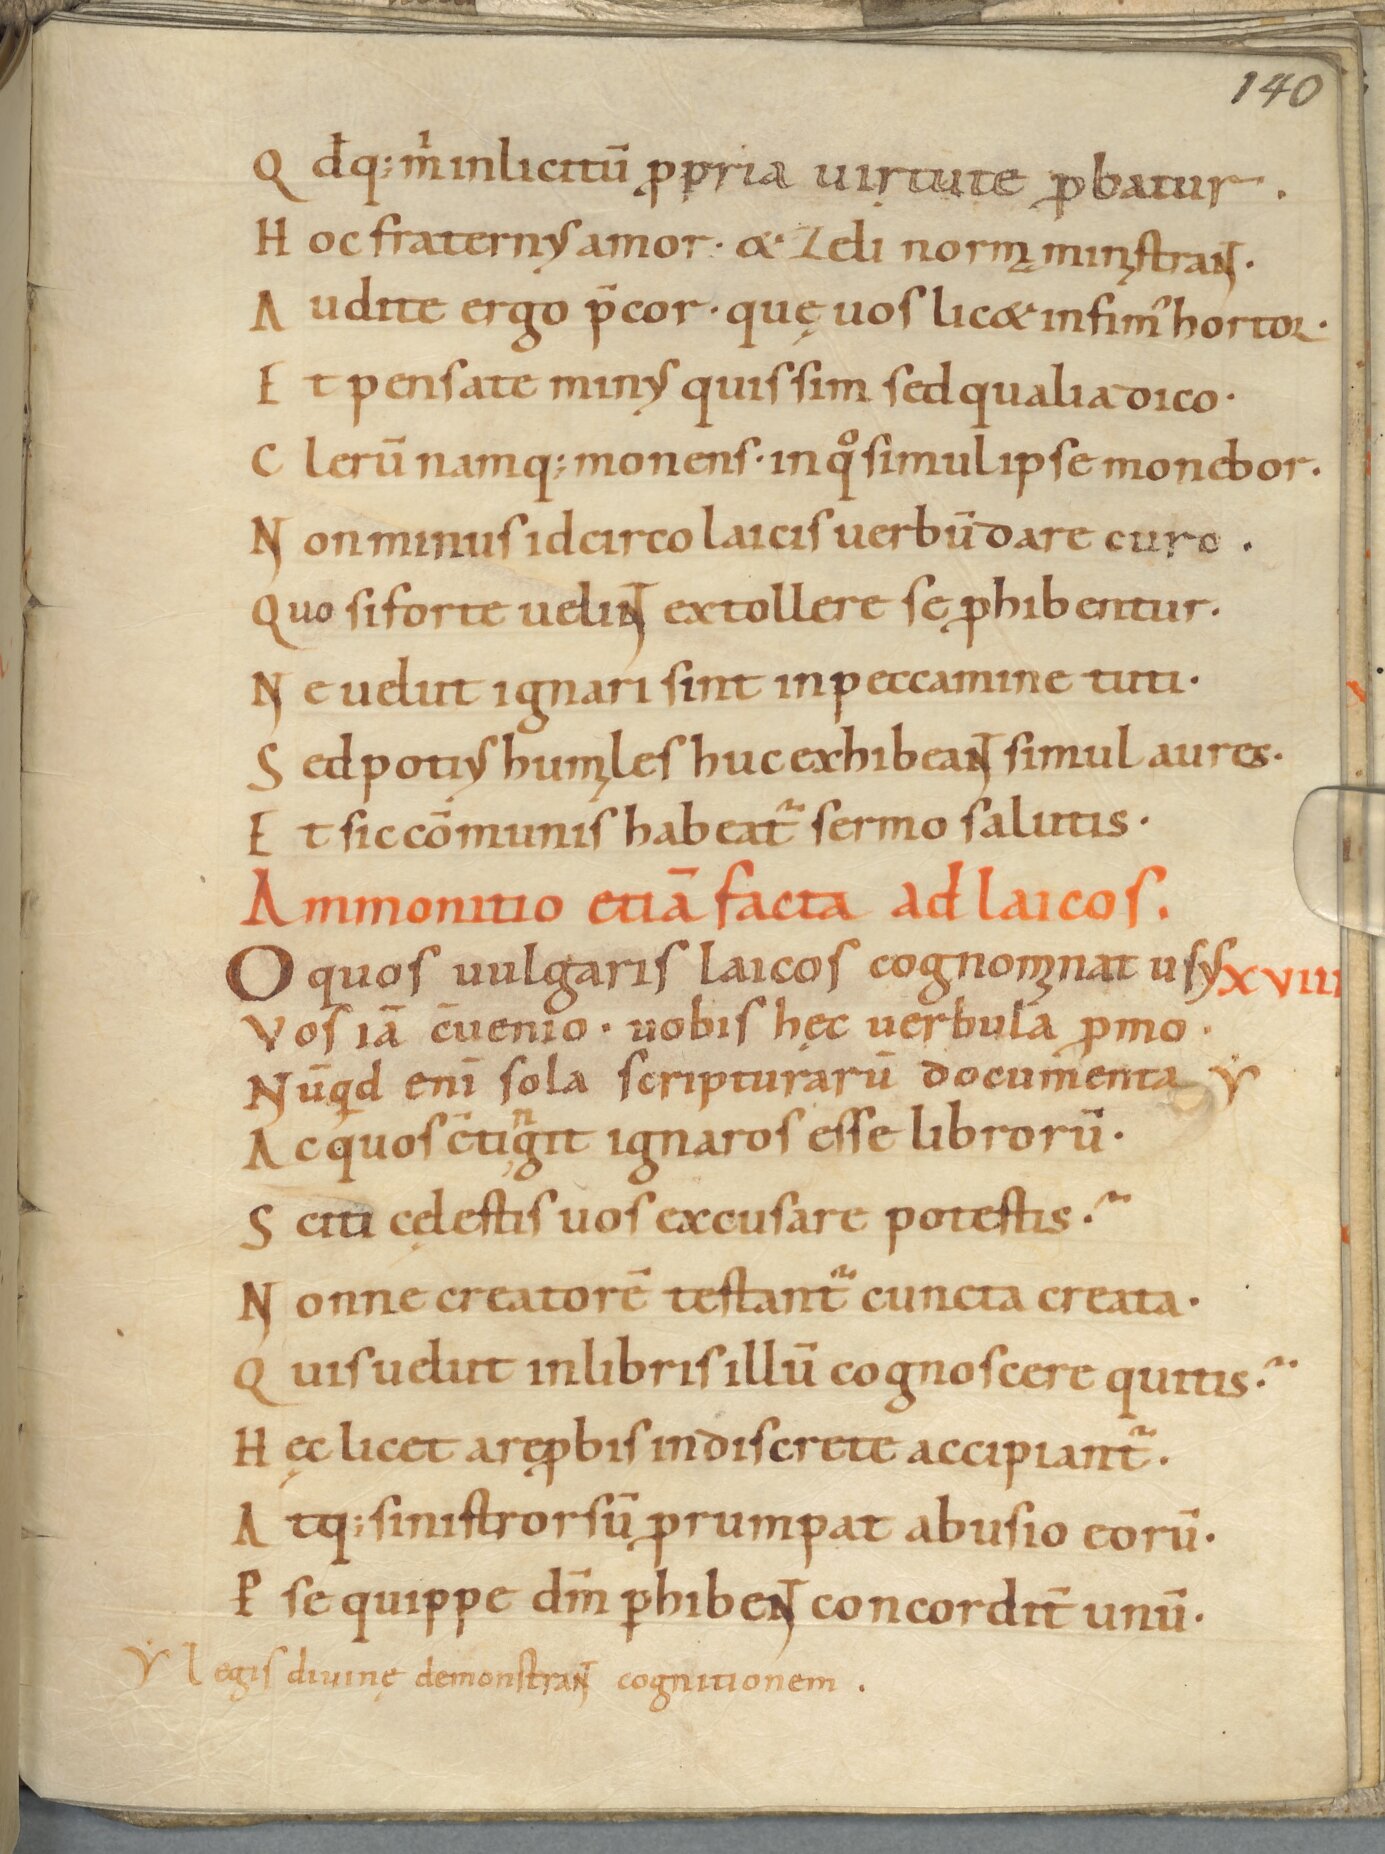 140
Q d̄q; m̊ inlicitū p̱pria uirtute p̱batur.
H oc fraternꝰ amor· & zeli norma minꝭstraNT·
A udite ergo p̄cor· quę uos lic& infim᾽ hortor·
E t pensate minꝰ quis sim sed qualia dico·
C lerū namq; monens· in qͦ simul ipse monebor.
N on minus idcirco laicis uerbū dare curo.
Quo si forte uelinNT extollere se p̱hibentur.
N e uelut ignari sint in peccamine tuti·
S ed potiꝰ humiles huc exhibeaNT simul aures·
E t sic cōmunis habeat᷑ sermo salutis·
Ammonitio etiā facta ad laicos.
O quos uulgaris laicos cognominat usꝰ XVIII
Vos iā c̄uenio· uobis hęc uerbula p̱mo·
Nūqd enī sola scripturarū documenta V̇
A c quos c̄tingit ignaros esse librorū·
S citi cęlestis uos excusare potestis·᷑
N onne creatorē testant᷑ cuncta creata·
Q uis uelut in libris illū cognoscere quitis·᷑
H ęc licet a rep̱bis indiscrete accipiant᷑·
A tq; sinistrorsū p̱rumpat abusio eorū·
E sse quippe dm̄ p̱hibeNT concordit̄ unū·
V̇ Legis diuinę demonstraNT cognitionem.